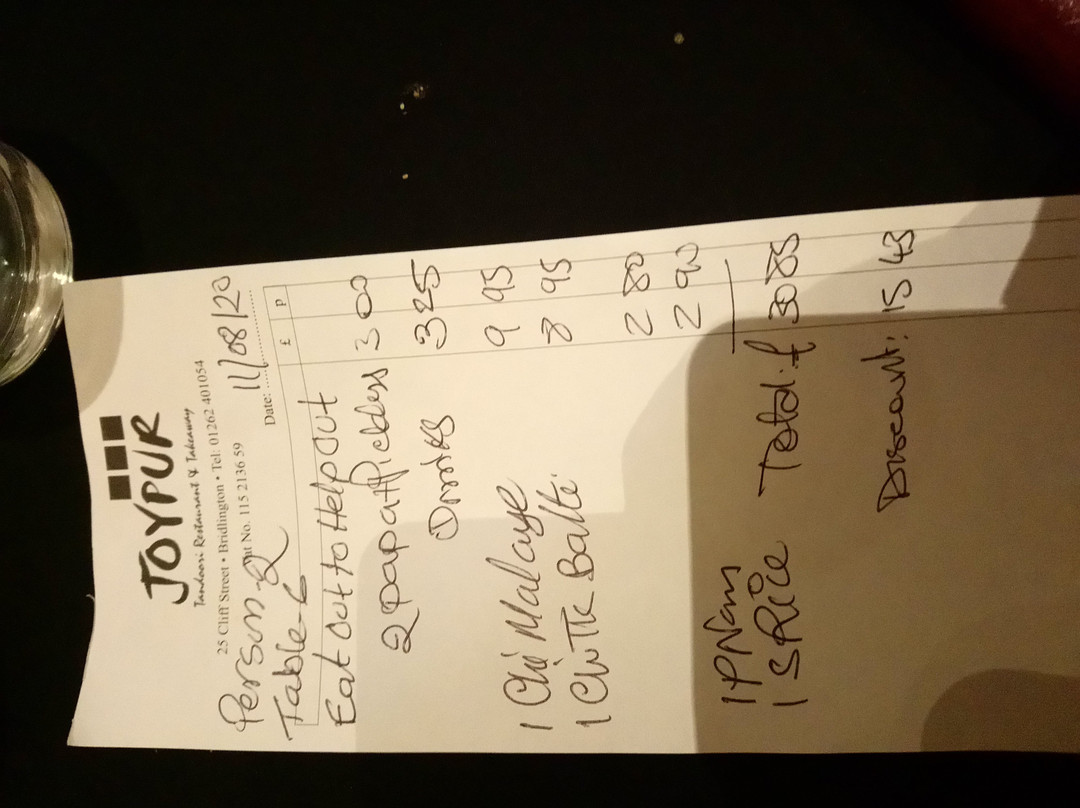 JOYPUR
Tandoori Restaurant & Takeaway
25 Cliff Street • Bridlington • Tel: 01262 401054
Person-2 Vat No. 115 2136 59 11/08/20
Table-6 Date:
£ p
Eat Out to Help Out
2 Pap at Pickles 3 00
Drinks 3 25
1 Chi Malaye 9 95
1 Chi TK Balti 8 95
1 PNan 2 80
1 S Rice 2 90
Total. £ 30 85
Discount: 15 43